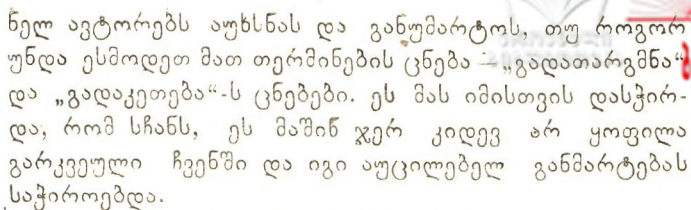 ნელ ავტორებს აუხსნას და განუმარტოს, თუ როგორ
უნდა ესმოდეთ მათ თერმინების ცნება — „გადათარგმნა“
და „გადაკეთება“-ს ცნებები. ეს მას იმისთვის დასჭირ-
და, რომ სჩანს, ეს მაშინ ჯერ კიდევ არ ყოფილა
გარკვეული ჩვენში და იგი აუცილებელ განმარტებას
საჭიროებდა.